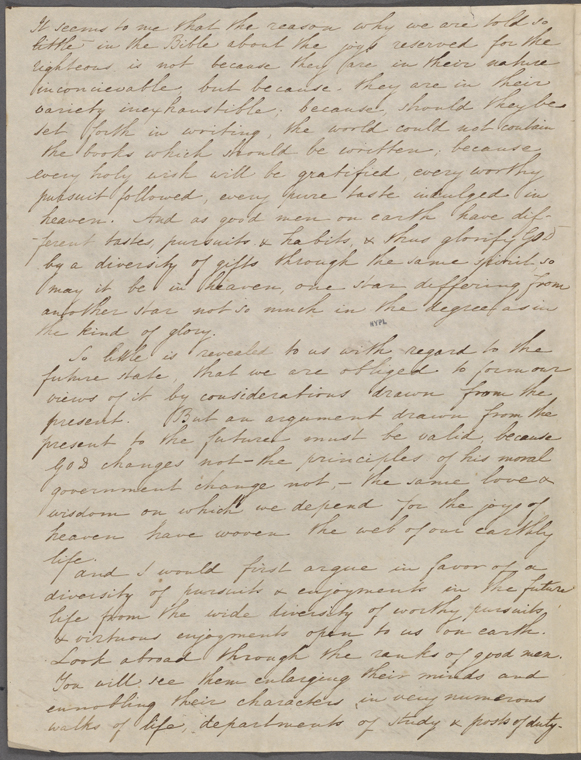 It seems to me that the reason why we are told so
little in the Bible about the joys reserved for the
righteous is not because they are in their nature
inconcievable, but because, they are in their
variety inexhaustible; because, should they be
set forth in writing, the world could not contain
the books which should be written; because
every holy wish will be gratified, every worthy
pursuit followed, every pure taste indulged in
heaven. And as good men on earth have dif-
ferent tastes, pursuits & habits, & thus glorify God
by a diversity of gifts through the same spirit so
may it be in heaven, one star differing from
another star not so much in the degree as in
the kind of glory.
NYPL
So little is revealed to us with regard to the
future state that we are obliged to form our
views of it by considerations drawn from the
present. But an argument drawn from the
present to the future must be valid, because
God changes not – the principles of his moral
government change not, – the same love &
wisdom on which we depend for the joys of
heaven have woven the web of our earthly
life.
And I would first argue in favor of a
diversity of pursuits & enjoyments in the future
life from the wide diversity of worthy pursuits,
& virtuous enjoyments open to us on earth.
Look abroad through the ranks of good men.
You will see them enlarging their minds and
ennobling their characters in very numerous
walks of life, departments of study & posts of duty.